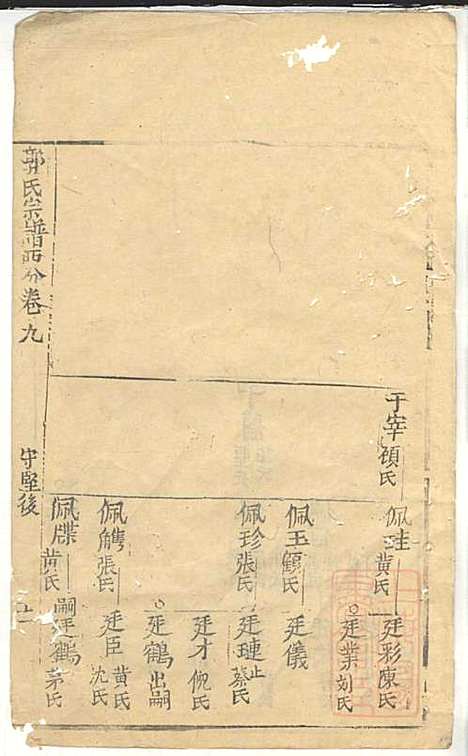 郭氏宗譜西分卷九
中堅後
于宰顧氏
佩珪黃氏
廷彩陳氏
廷業刘氏
佩玉顧氏
廷儀
佩珍張氏
廷璉止蔡氏
廷才倪氏
佩觹張氏
廷鶴出嗣
廷臣黃氏沈氏
佩牒黃氏
嗣廷鶴茅氏